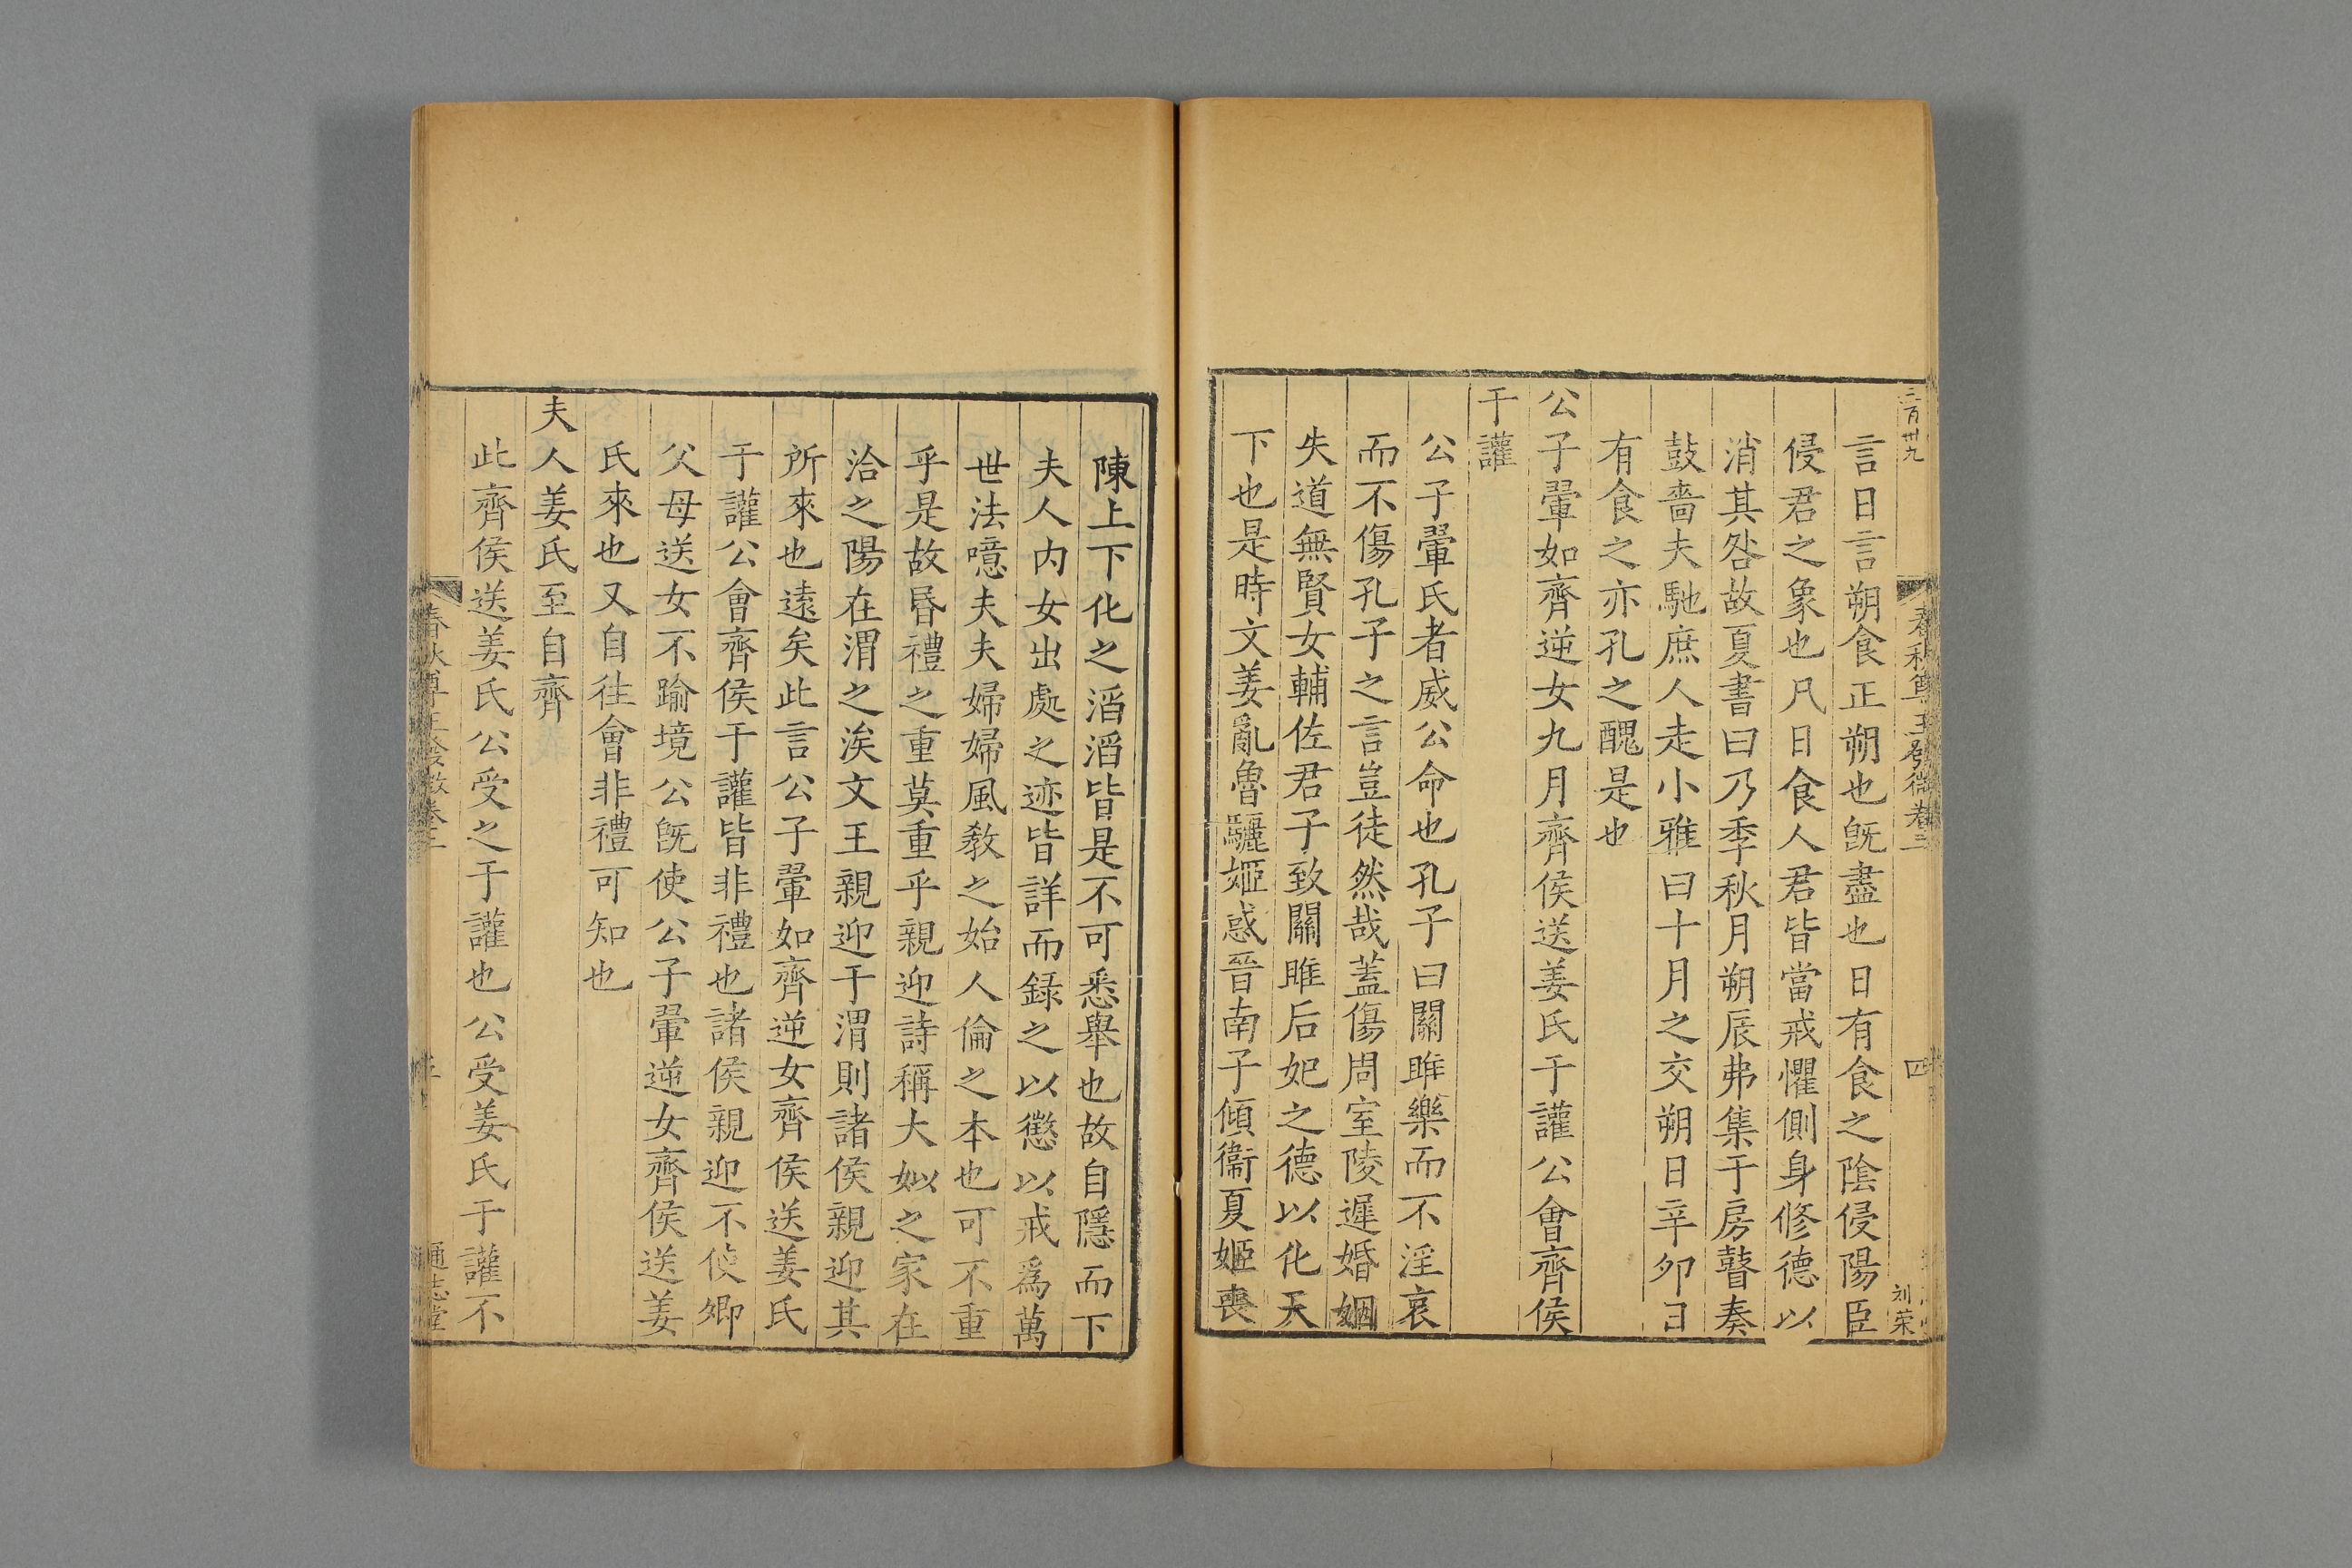 二百卅九
春秋尊王發微卷二
四
刘荣
言日言朔食正朔也旣盡也日有食之陰侵陽臣
侵君之象也凡日食人君皆當戒懼側身修德以
消其咎故夏書曰乃季秋月朔辰弗集于房瞽奏
鼓嗇夫馳庶人走小雅曰十月之交朔日辛卯日
有食之亦孔之醜是也
公子翬如齊逆女九月齊侯送姜氏于讙公會齊侯
于讙
公子翬氏者威公命也孔子曰關雎樂而不淫哀
而不傷孔子之言豈徒然哉蓋傷周室陵遲婚姻
失道無賢女輔佐君子致關雎后妃之德以化天
下也是時文姜亂魯驪姬惑晉南子傾衞夏姬喪
陳上下化之滔滔皆是不可悉舉也故自隱而下
夫人内女出處之迹皆詳而録之以懲以戒爲萬
世法噫夫夫婦婦風敎之始人倫之本也可不重
乎是故昬禮之重莫重乎親迎詩稱大姒之家在
洽之陽在渭之涘文王親迎于渭則諸侯親迎其
所來也遠矣此言公子翬如齊逆女齊侯送姜氏
于讙公會齊侯于讙皆非禮也諸侯親迎不使卿
父母送女不踰境公旣使公子翬逆女齊侯送姜
氏來也又自往會非禮可知也
夫人姜氏至自齊
此齊侯送姜氏公受之于讙也公受姜氏于讙不
春秋尊王發微卷二
通志堂